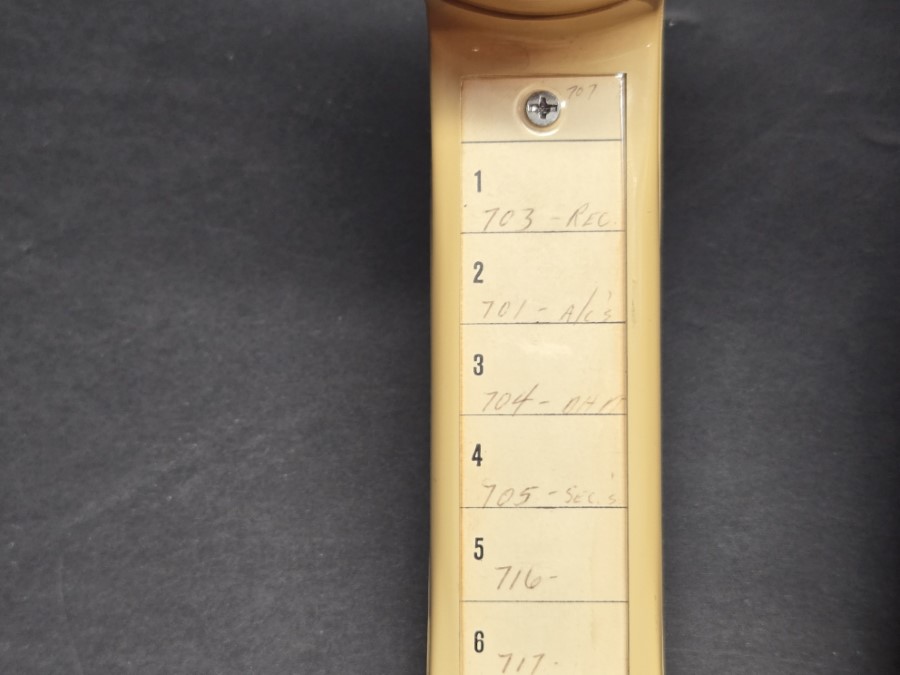 707
1
703 - REC.
2
701 - A/C's
3
704 -
4
705 - SEC.'s
5
716-
6
717-